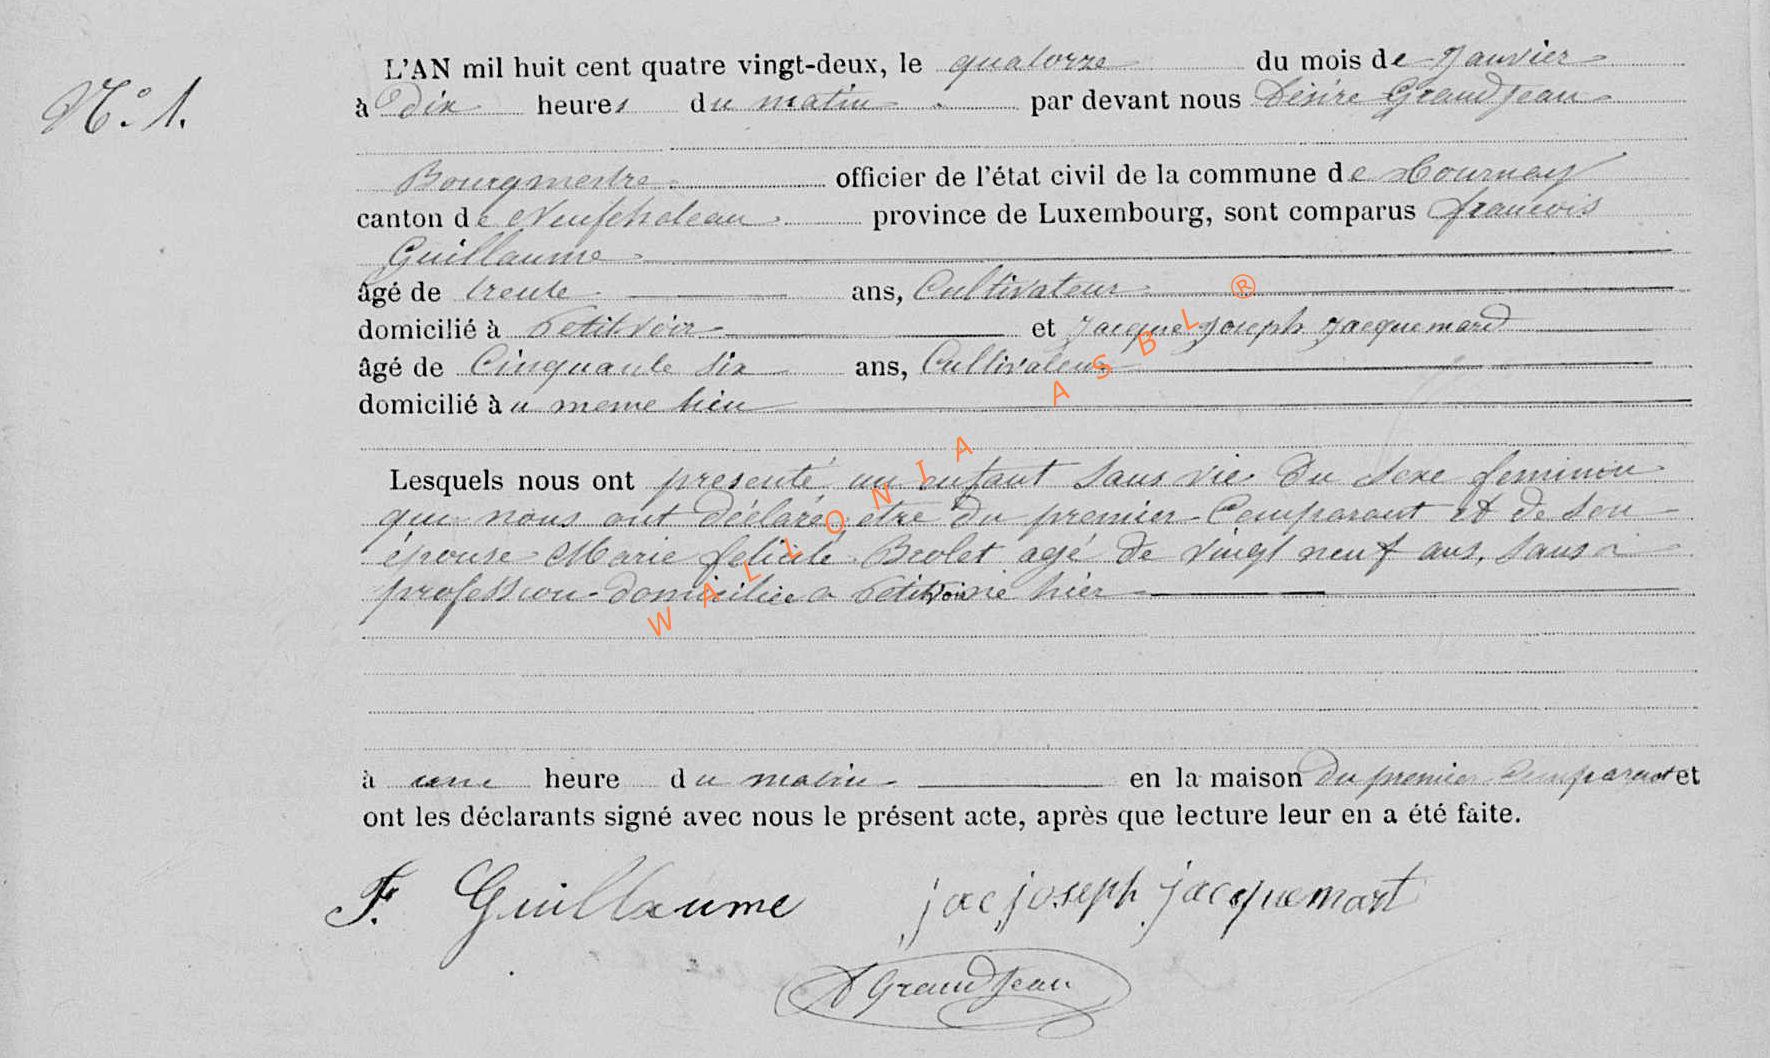 N° 1.
L'AN mil huit cent quatre vingt-deux, le quatorze du mois de Janvier
à dix heures du matin par devant nous Désiré Grandjean
Bourgmestre officier de l'état civil de la commune de Tournay
canton de Neufchateau province de Luxembourg, sont comparus francois
Guillaume
âgé de trente ans, Cultivateur
domicilié à Petitvoir et Jacque Joseph Jacquemard
âgé de Cinquante six ans, Cultivateur
domicilié à u meme lieu
Lesquels nous ont presenté un enfant sans vie du sexe feminin
que nous ont déclaré etre du premier Comparant et de son
épouse Marie felicité Brolet agé de vingt neuf ans, sans
profession domiciliée a Petitvoir né hier
à une heure du matin en la maison du premier comparant et
ont les déclarants signé avec nous le présent acte, après que lecture leur en a été faite.
F. Guillaume jac joseph jacquemart
D Grandjean
WALLONIA ASBL ®